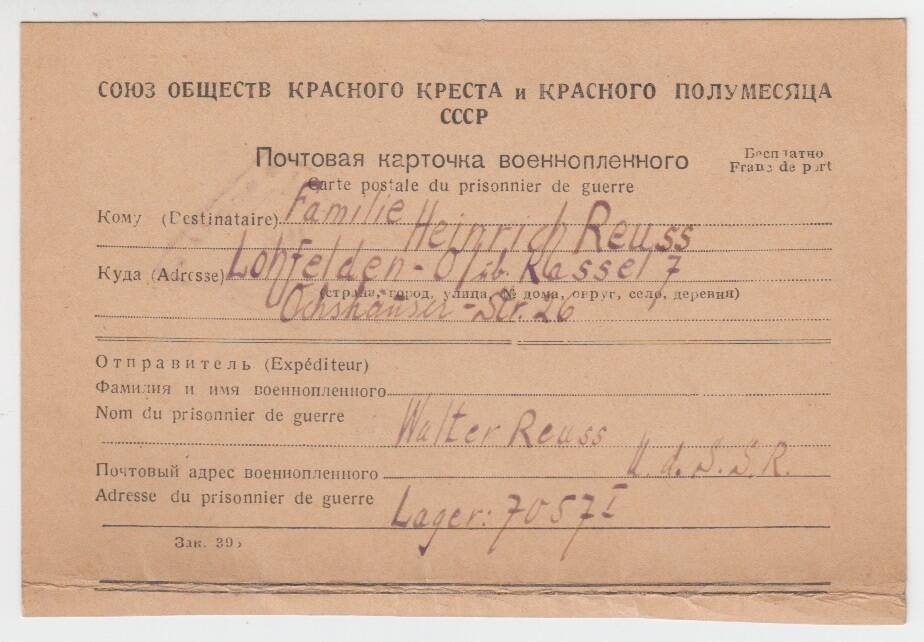 СОЮЗ ОБЩЕСТВ КРАСНОГО КРЕСТА и КРАСНОГО ПОЛУМЕСЯЦА
СССР
Почтовая карточка военнопленного
Бесплатно
Franc de port
Carte postale du prisonnier de guerre
Кому (Destinataire) Familie Heinrich Reuss
Куда (Adresse) Lohfelden - üb. Kassel 7
(страна, город, улица, № дома, округ, село, деревня)
Ochshäuser - Str. 26
Отправитель (Expéditeur)
Фамилия и имя военнопленного
Nom du prisonnier de guerre Walter Reuss
U.d.S.S.R.
Почтовый адрес военнопленного
Adresse du prisonnier de guerre Lager: 7057 I
Зак.